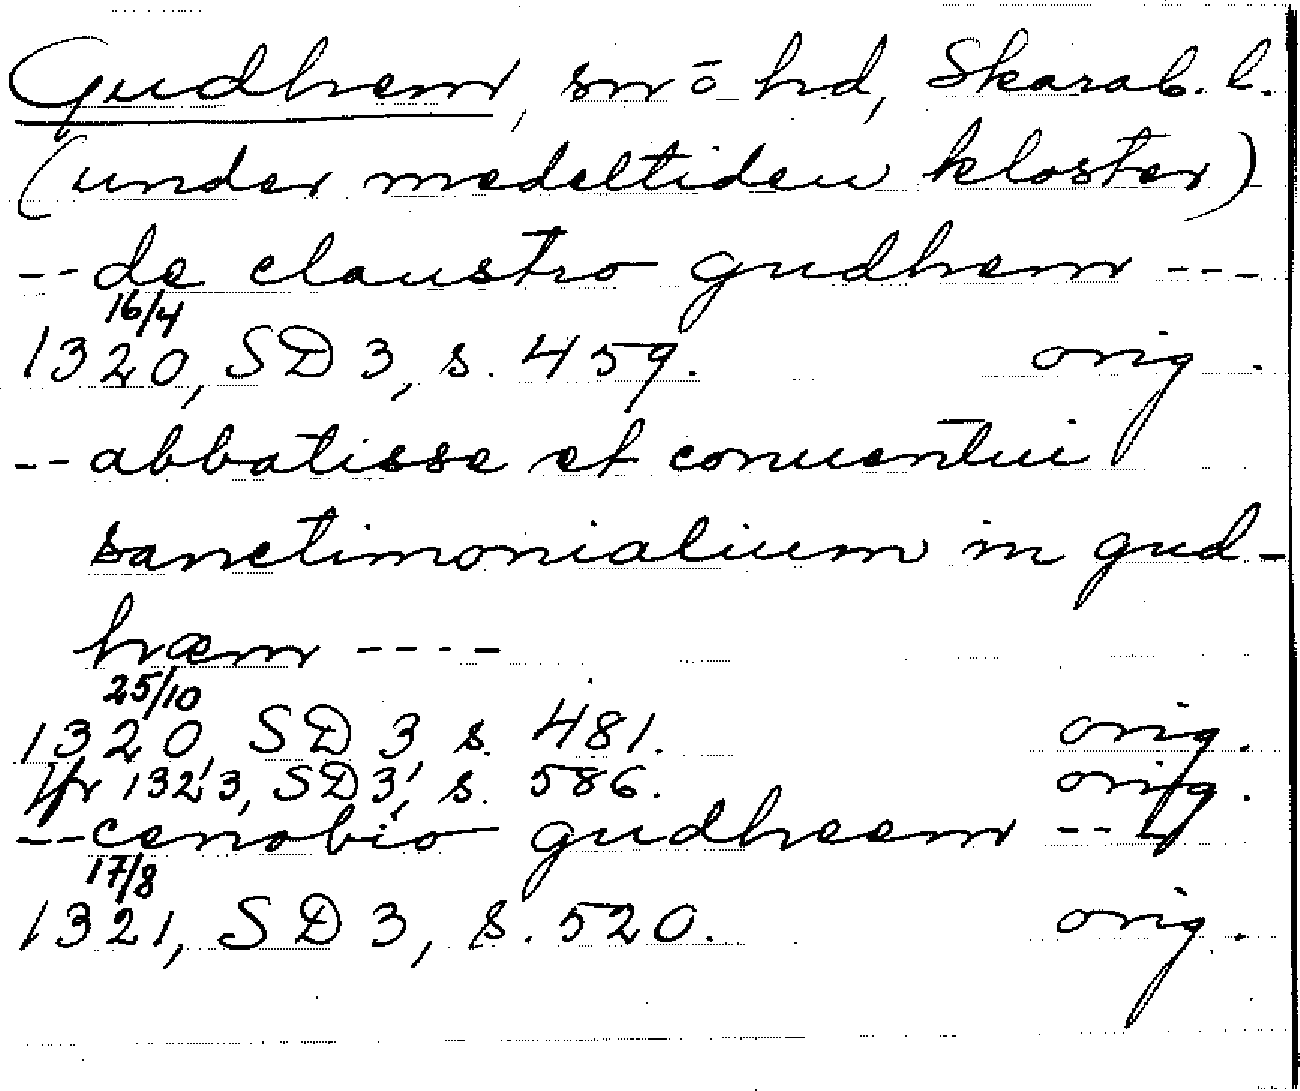 Gudhem, sn o hd, Skarab. l.
(under medeltiden kloster)
-- de claustro gudhem ---
16/4
1320, SD 3, s. 459. orig.
-- abbatisse et conuentui
sanctimonialium in gud-
hæm ----
25/10
1320, SD 3 s. 481. orig.
Jfr 1323, SD 3, s. 586. orig.
-- cenobio gudheem ---
17/8
1321, SD 3, s. 520. orig.